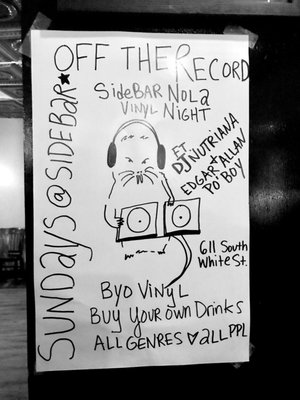 OFF THE RECORD
SideBAR NOLA
VINYL NIGHT
FT.
DJ NUTRIANA
EDGAR ALLAN
PO' BOY
SUNDAYS @ SIDEBAR
611 SOUTH
WHITE ST.
BYO VINYL
BUY YOUR OWN DRINKS
ALL GENRES ♥ ALL PPL